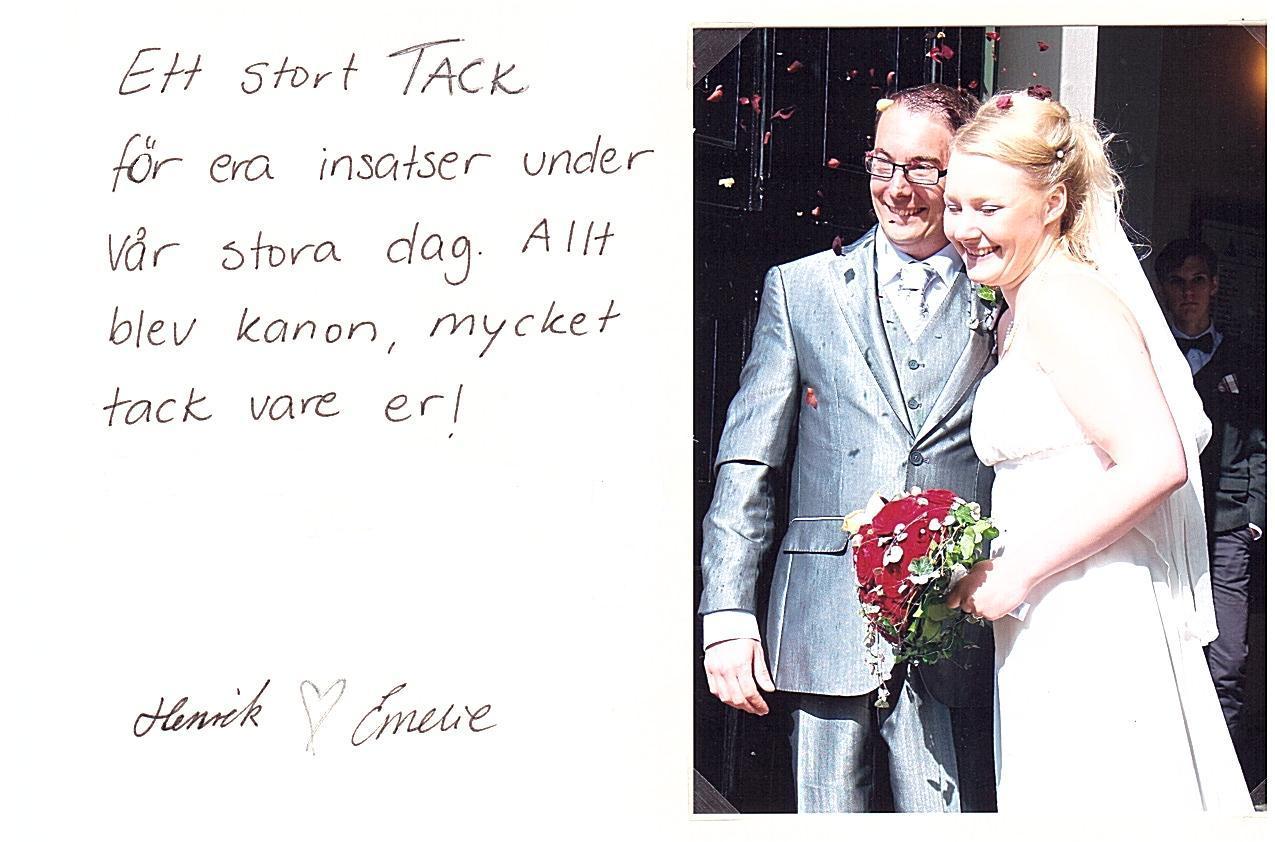 Ett stort TACK
för era insatser under
vår stora dag. Allt
blev kanon, mycket
tack vare er!
Henrik ♡ Emelie